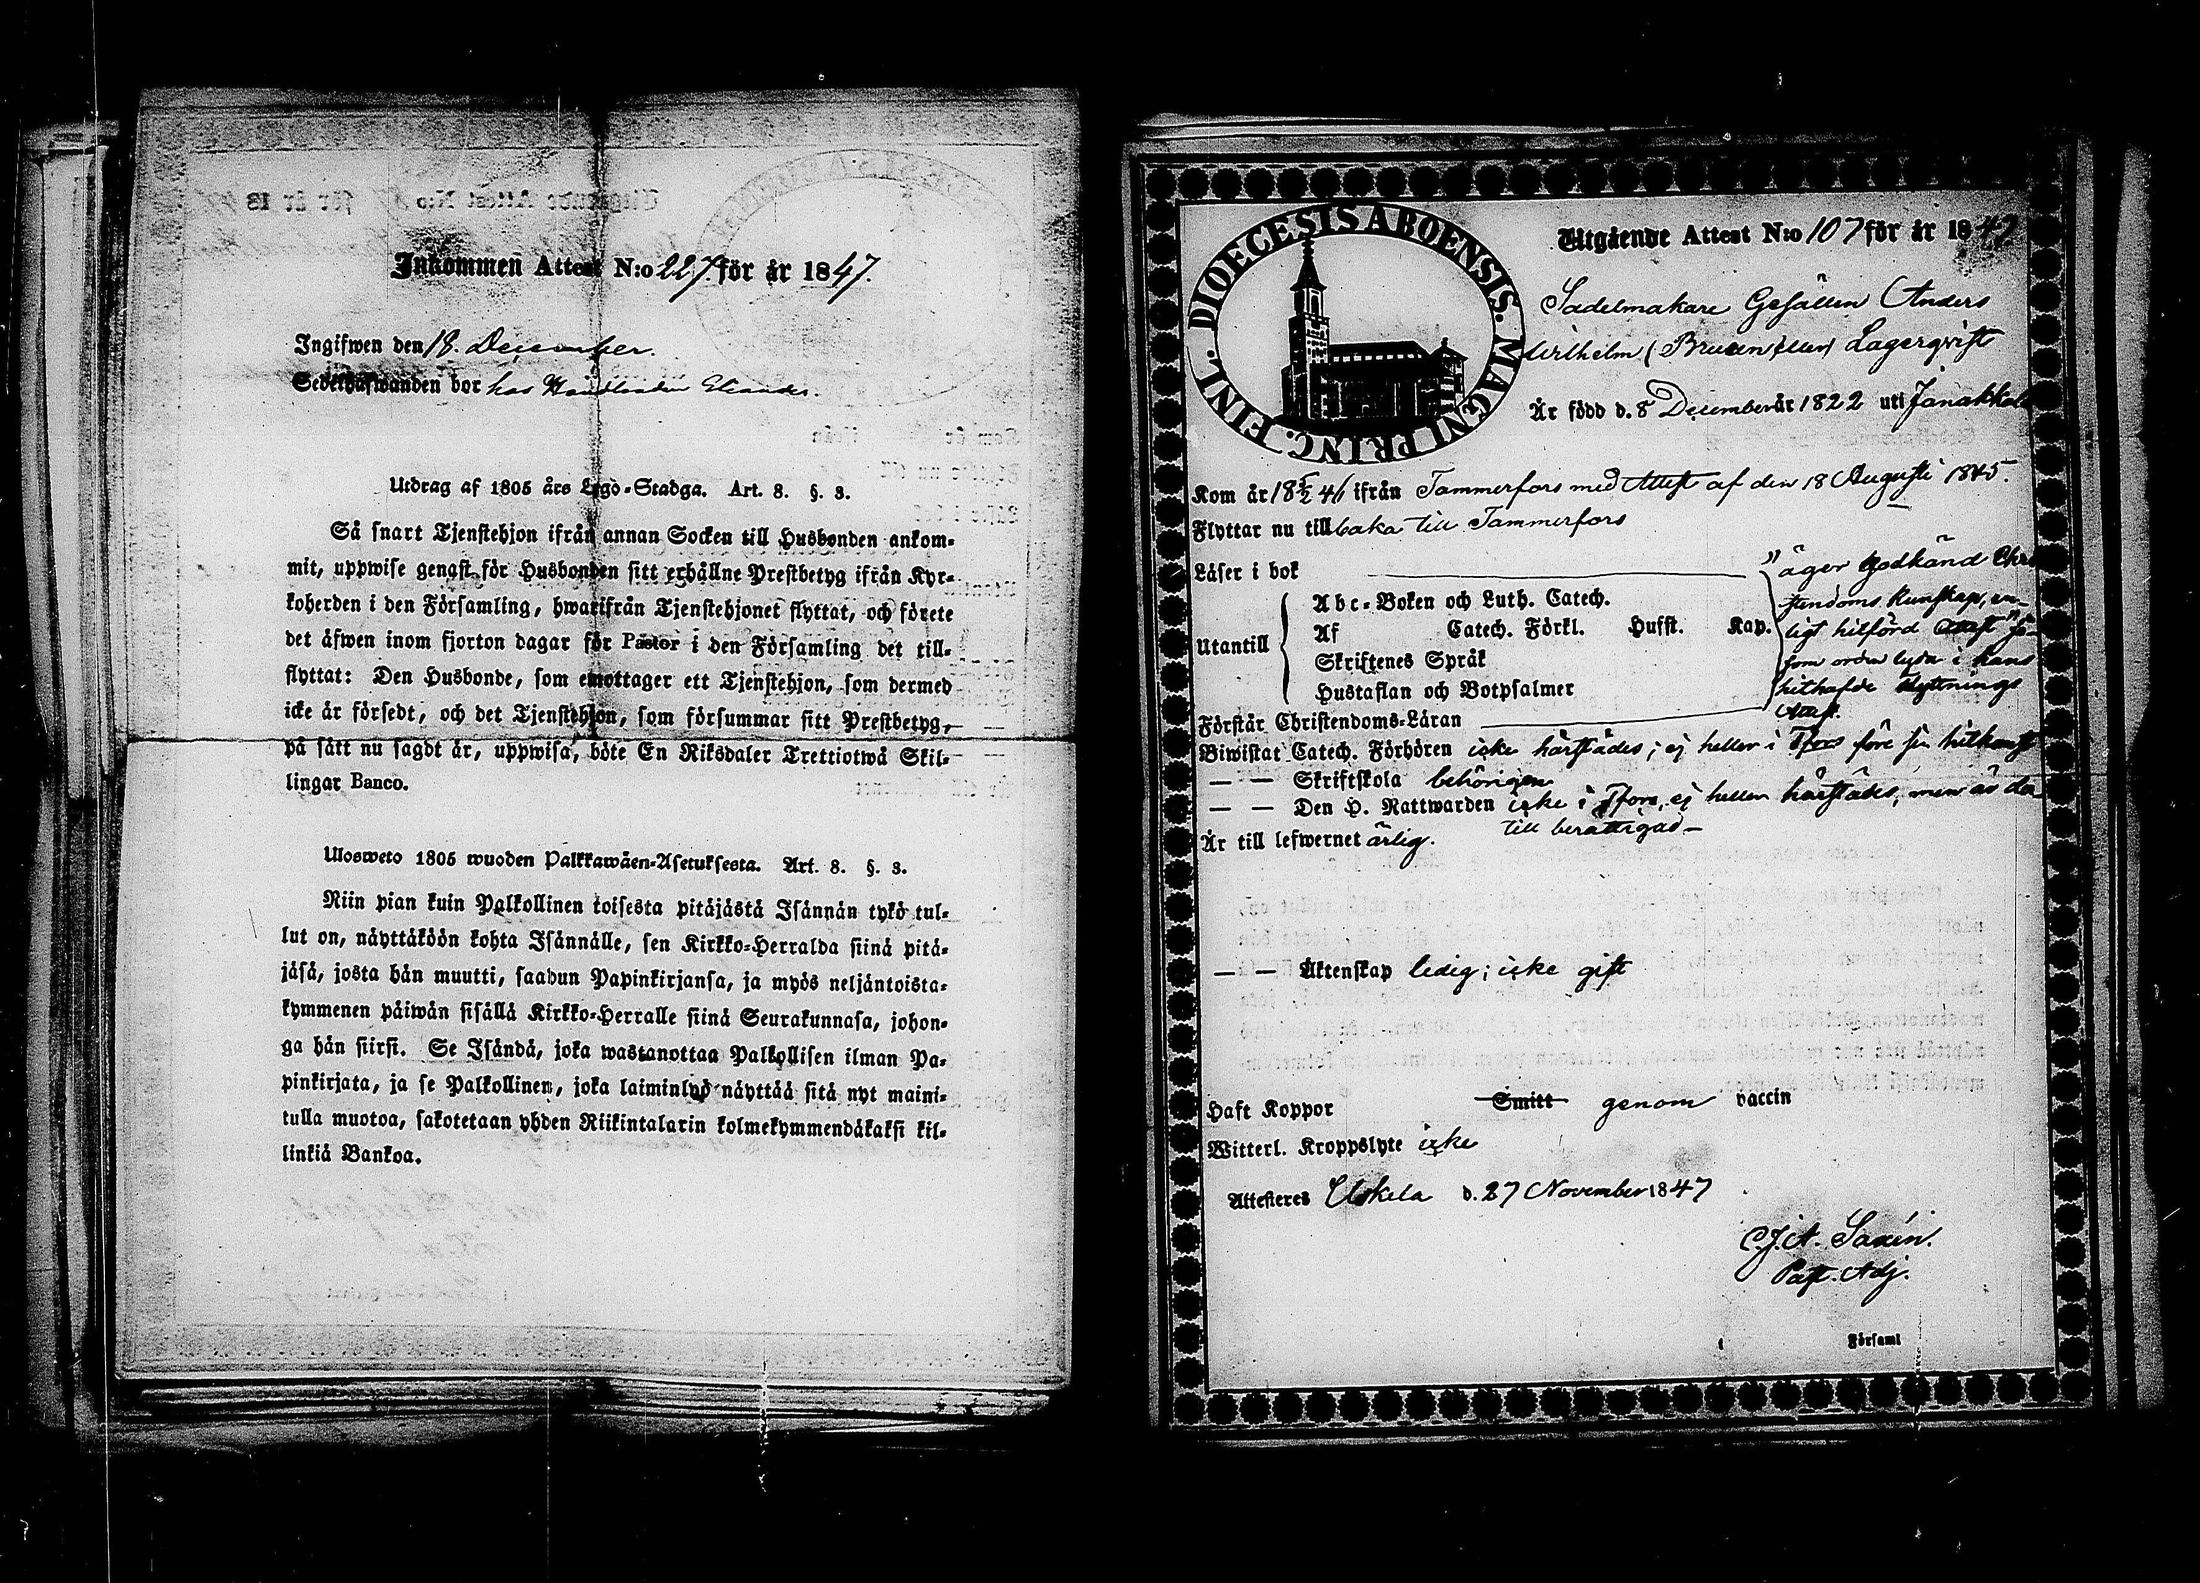 Inkommen Attest N:o 227. för år 1847.
Ingifwen den 18. December.
Sedelhafwanden bor hos
Utdrag af 1805 års Lego-Stadga. Art. 8. §. 3.
Så snart Tjenstehjon ifrån annan Socken till Husbonden ankom-
mit, uppwise genast för Husbonden sitt erhållne Prestbetyg ifrån Kyr-
koherden i den Församling, hwarifrån Tjenstehjonet flyttat, och förete
det äfwen inom fjorton dagar för Pastor i den Församling det till-
flyttat: Den Husbonde, som emottager ett Tjenstehjon, som dermed
icke är försedt, och det Tjenstehjon, som försummar sitt Prestbetyg,
på sätt nu sagdt är, uppwisa, böte En Riksdaler Trettiotwå Skil-
lingar Banco.
Ulosweto 1805 wuoden Palkkawäen-Asetuksesta. Art. 8. §. 3.
Niin pian kuin Palkollinen toisesta pitäjästä Isännän tykö tul-
lut on, näyttäköön kohta Isännälle, sen Kirkko-Herralda siinä pitä-
jäsä, josta hän muutti, saadun Papinkirjansa, ja myös neljäntoista-
kymmenen päiwän sisällä Kirkko-Herralle siinä Seurakunnasa, johon-
ga hän siirsi. Se Isändä, joka wastanottaa Palkollisen ilman Pa-
pinkirjata, ja se Palkollinen, joka laiminlyö näyttää sitä nyt maini-
tulla muotoa, sakotetaan yhden Riikintalarin kolmekymmendäkaksi kil-
linkiä Bankoa.
DIOECESIS ABOENSIS. MAGNI PRINC. FINL.
Utgående Attest N:o 107 för år 1847
Sadelmakare Gesällen Anders
Wilhelm (Bruun eller) Lagerqvist
Är född d. 8 December år 1822 uti Janakkala
Kom år 18 5/2 46 ifrån Tammerfors med Attest af den 18 Augusti 1845.
Flyttar nu tillbaka till Tammerfors
Läser i bok
"äger godkänd Chri
Abc-Boken och Luth. Catech.
stendoms kunskap, en-
Utantill
Af Catech. Förkl. Husst. Kap.
ligt hitförd Attest" så-
Skriftenes Språk
som orden lyda i hans
Hustaflan och Botpsalmer
hithafde flyttnings
Attest.
Förstår Christendoms-Läran
Biwistat Catech. Förhören icke härstädes; ej heller i Tfors före sin hitkomst
— — Skriftskola behörigen
— — Den H. Nattwarden icke i Tfors, ej heller härstädes, men är der-
till berättigad —
Är till lefwernet ärlig.
— — Äktenskap ledig; icke gift
Haft Koppor Smitt genom vaccin
Witterl. Kroppslyte icke
Attesteres Uskela d. 27 November 1847
C.J.A. Saxén.
Past. Adj.
Församl